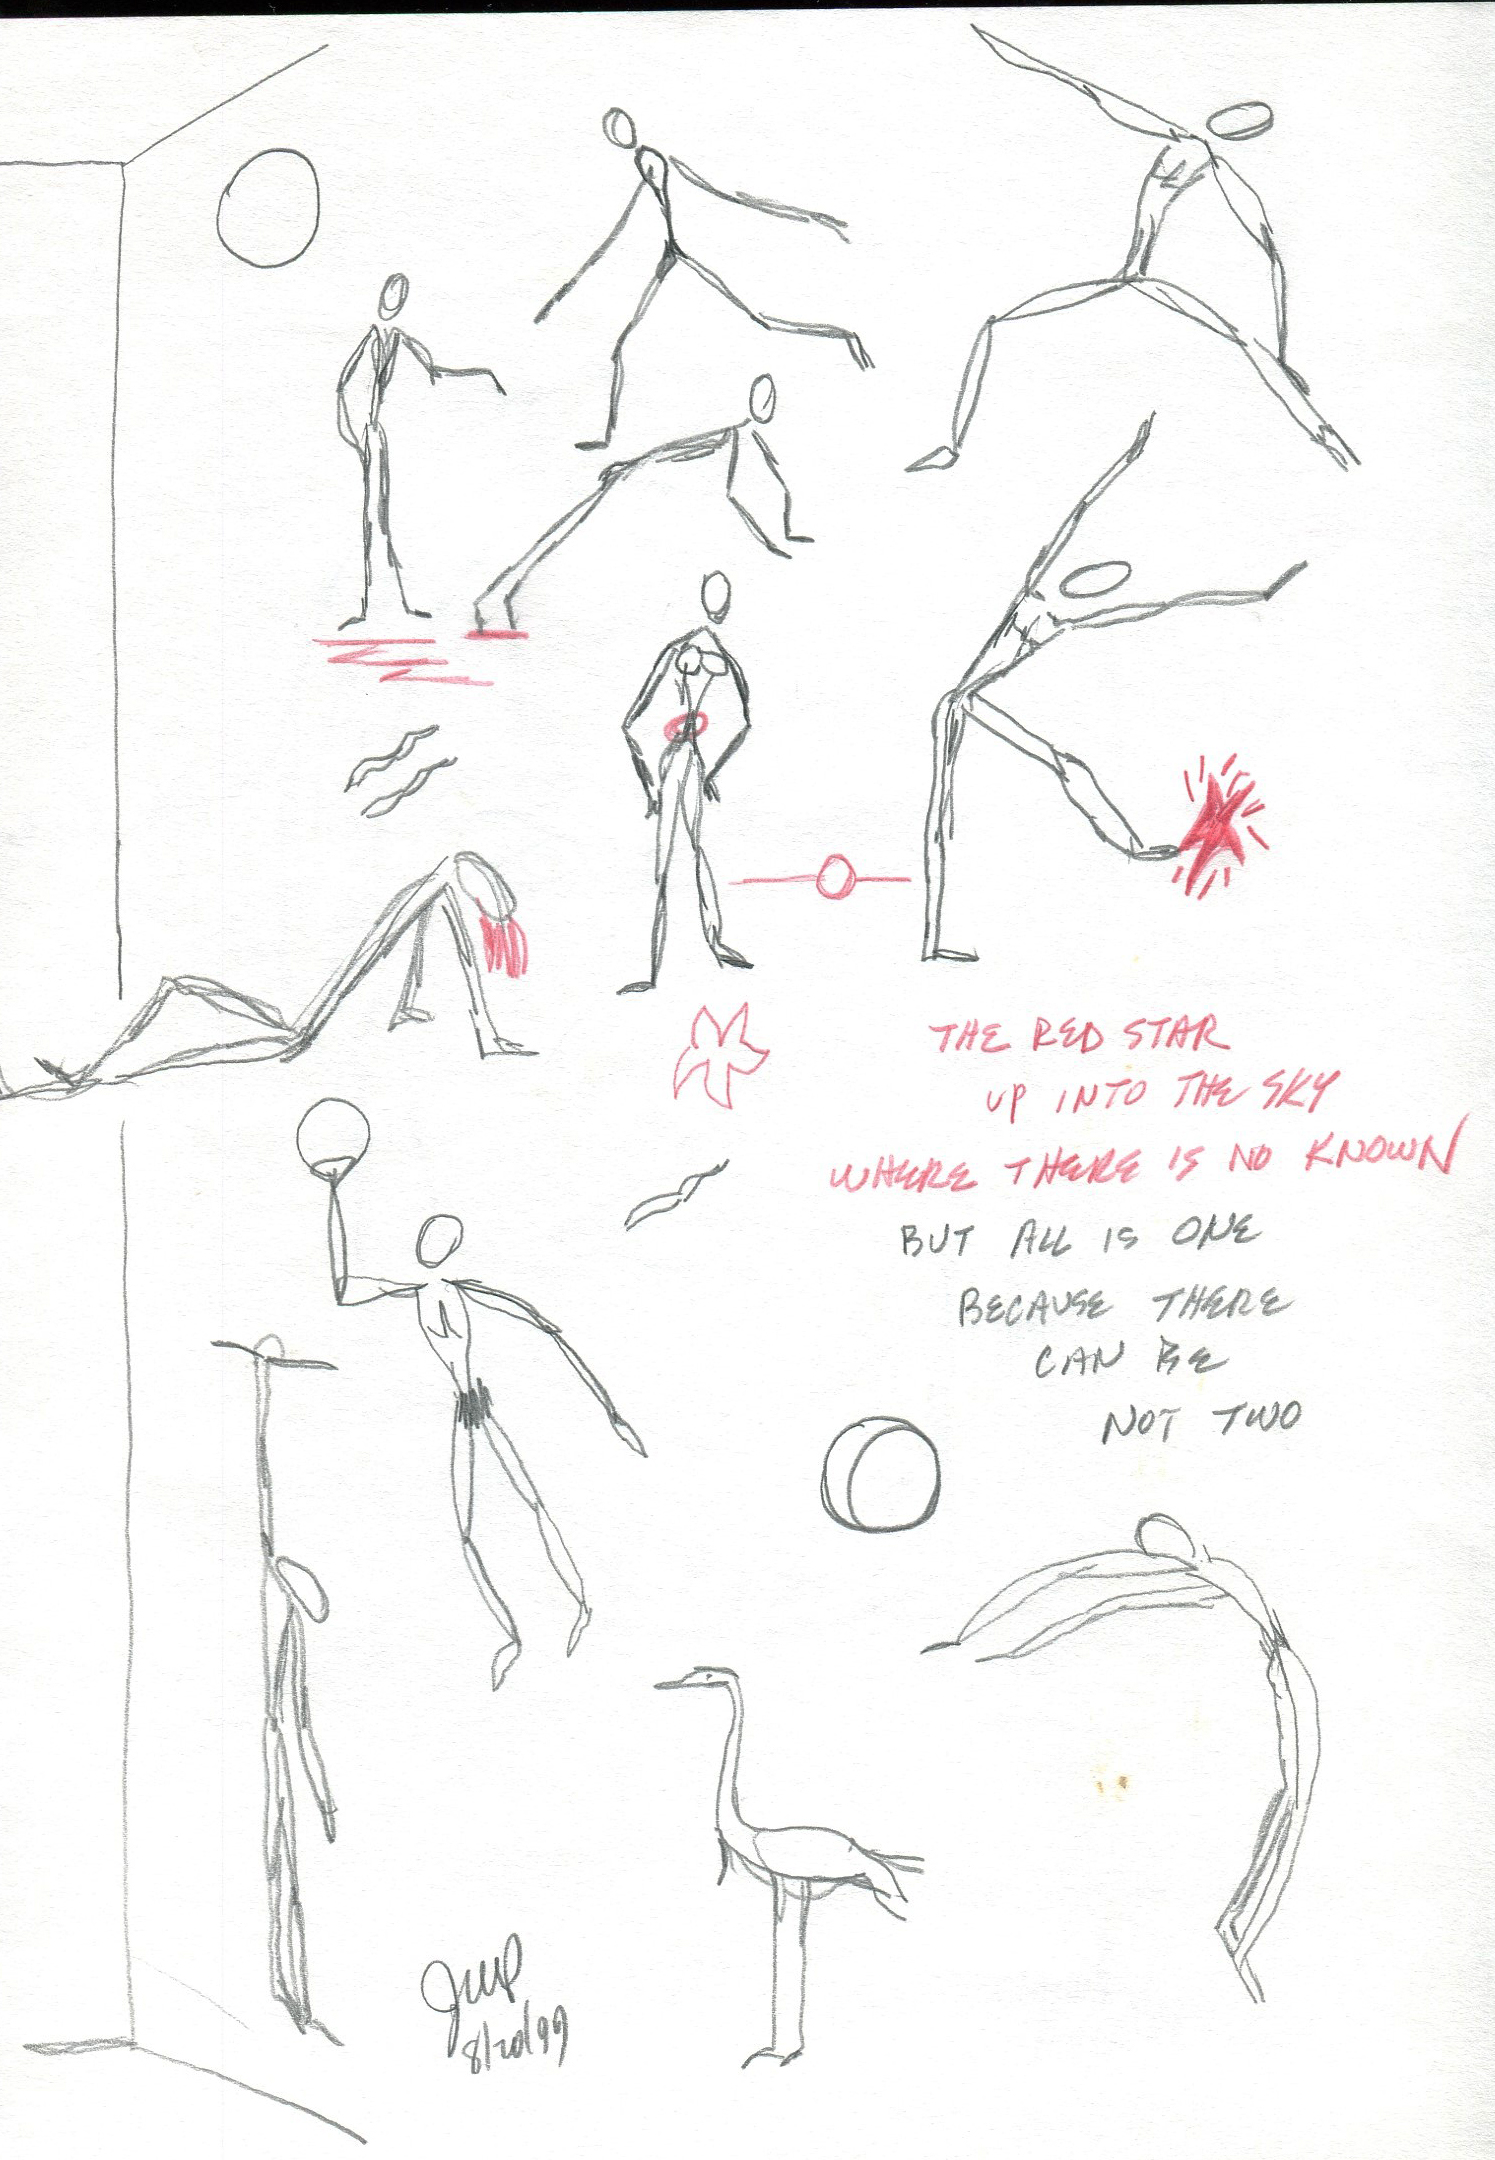 THE RED STAR
UP INTO THE SKY
WHERE THERE IS NO KNOWN
BUT ALL IS ONE
BECAUSE THERE
CAN BE
NOT TWO
8/20/99